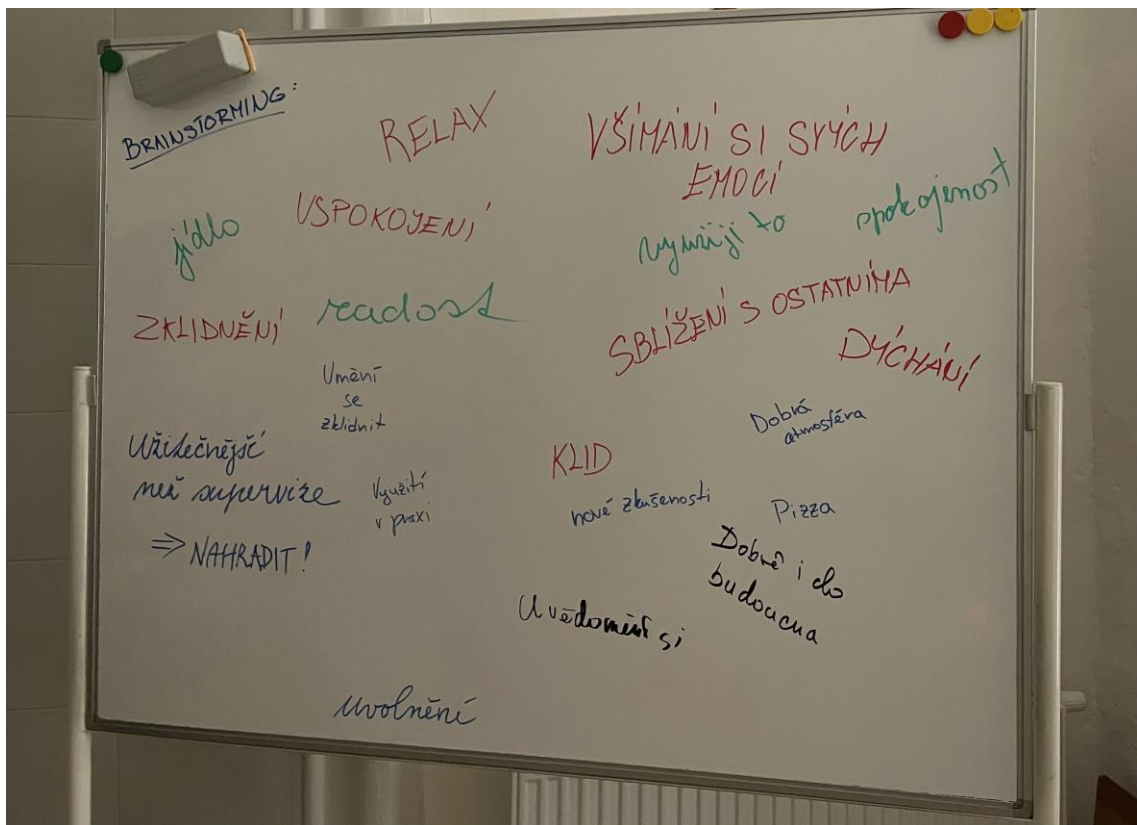 BRAINSTORMING:
RELAX
VŠÍMÁNÍ SI SVÝCH
EMOCÍ
jídlo
USPOKOJENÍ
využiji to
spokojenost
ZKLIDNĚNÍ
radost
SBLÍŽENÍ S OSTATNÍMA
DÝCHÁNÍ
Umění
se
zklidnit
Dobrá
atmosféra
Užitečnější
než supervize
⇒ NAHRADIT!
Využití
v praxi
KLID
nové zkušenosti
Pizza
Dobré i do
budoucna
Uvědomění si
uvolnění